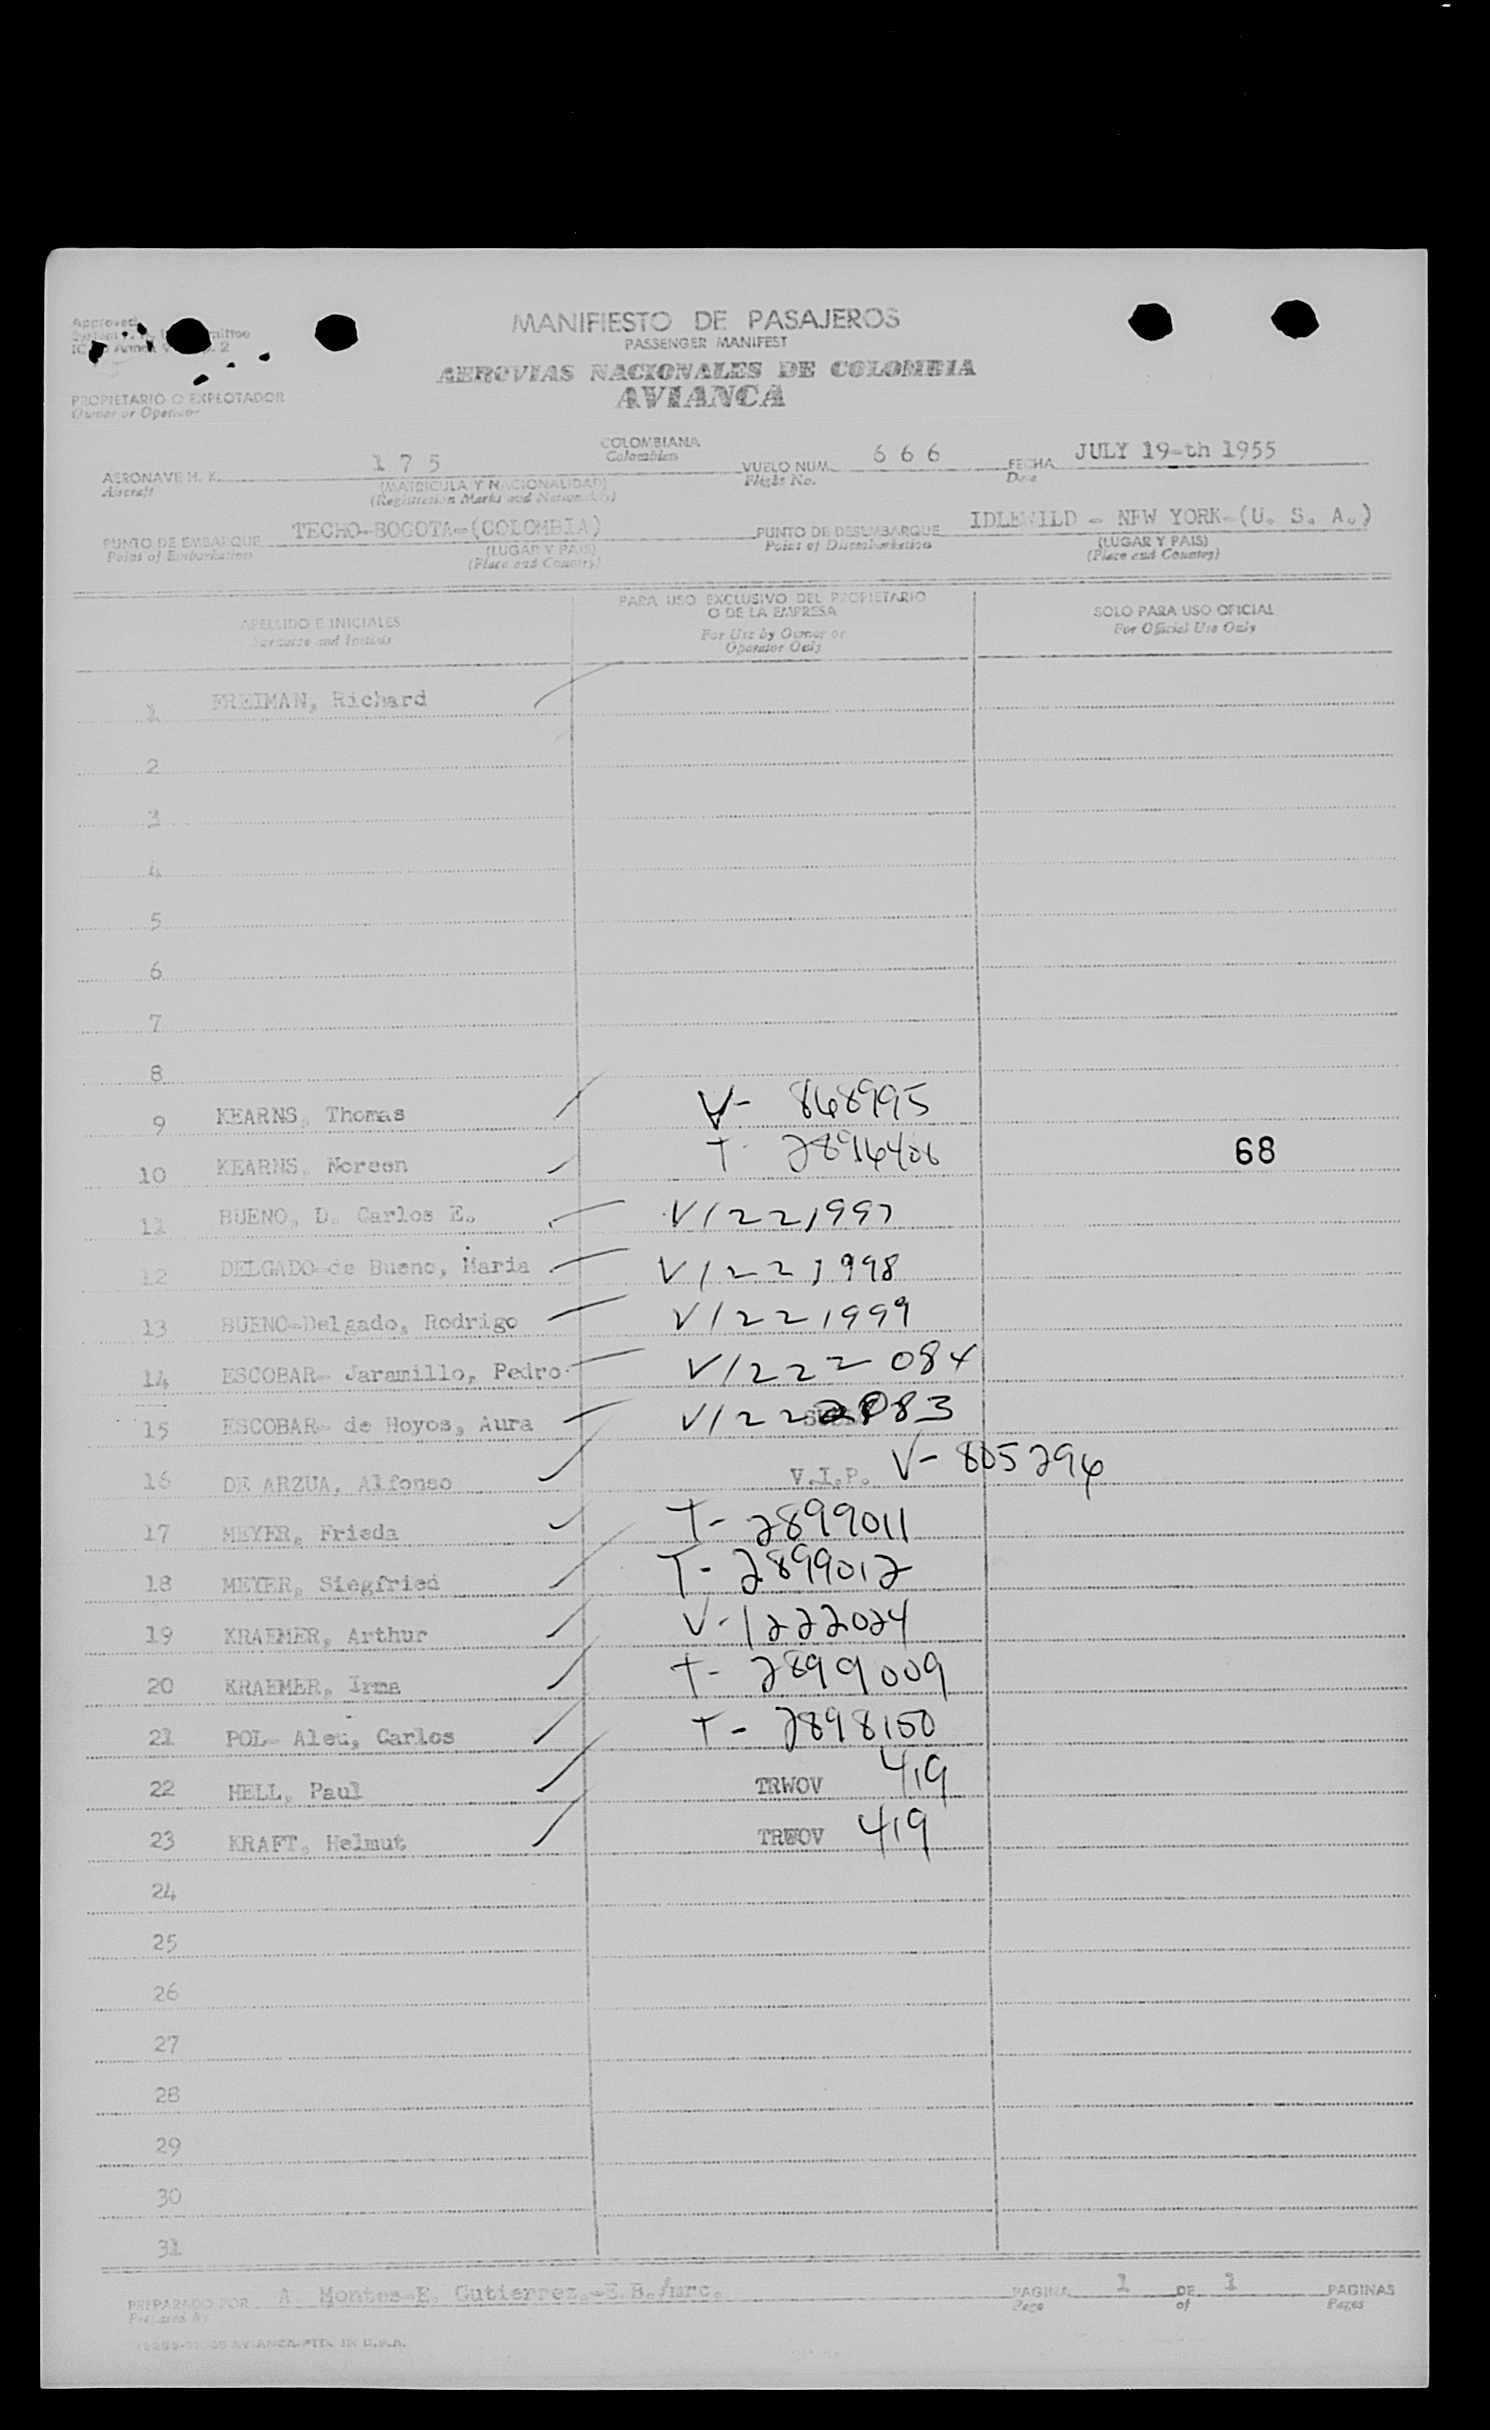 Approved
MANIFIESTO DE PASAJEROS
PASSENGER MANIFEST
AEROVIAS NACIONALES DE COLOMBIA
AVIANCA
PROPIETARIO O EXPLOTADOR
Owner or Operator
AERONAVE H. K. 175 COLOMBIANA VUELO NUM. 666 FECHA JULY 19-th 1955
Aircraft Colombian Flight No. Date
(MATRICULA Y NACIONALIDAD)
(Registration Marks and Nationality)
PUNTO DE EMBARQUE TECHO-BOGOTA-(COLOMBIA) PUNTO DE DESEMBARQUE IDLEWILD - NEW YORK-(U. S. A.)
Point of Embarkation (LUGAR Y PAIS) Point of Disembarkation (LUGAR Y PAIS)
(Place and Country) (Place and Country)
APELLIDO E INICIALES PARA USO EXCLUSIVO DEL PROPIETARIO O DE LA EMPRESA SOLO PARA USO OFICIAL
Surname and Initials For Use by Owner or Operator Only For Official Use Only
1 FREIMAN, Richard
2
3
4
5
6
7
8
9 KEARNS, Thomas V- 868995
10 KEARNS, Noreen T- 2896406 68
11 BUENO, D. Carlos E. V1221997
12 DELGADO-de Bueno, Maria V1221998
13 BUENO-Delgado, Rodrigo V1221999
14 ESCOBAR- Jaramillo, Pedro V1222084
15 ESCOBAR- de Hoyos, Aura V1222083
16 DE ARZUA, Alfonso V.I.P. V-805296
17 MEYER, Frieda T-2899011
18 MEYER, Siegfried T-2899012
19 KRAEMER, Arthur V-1222024
20 KRAEMER, Irma T-2899009
21 POL- Aleu, Carlos T-2898150
22 HELL, Paul TRWOV 419
23 KRAFT, Helmut TRWOV 419
24
25
26
27
28
29
30
31
PREPARADO POR A. Montes-E. Gutierrez.-E.B./mrc. PAGINA 1 DE 1 PAGINAS
Prepared by Page of Pages